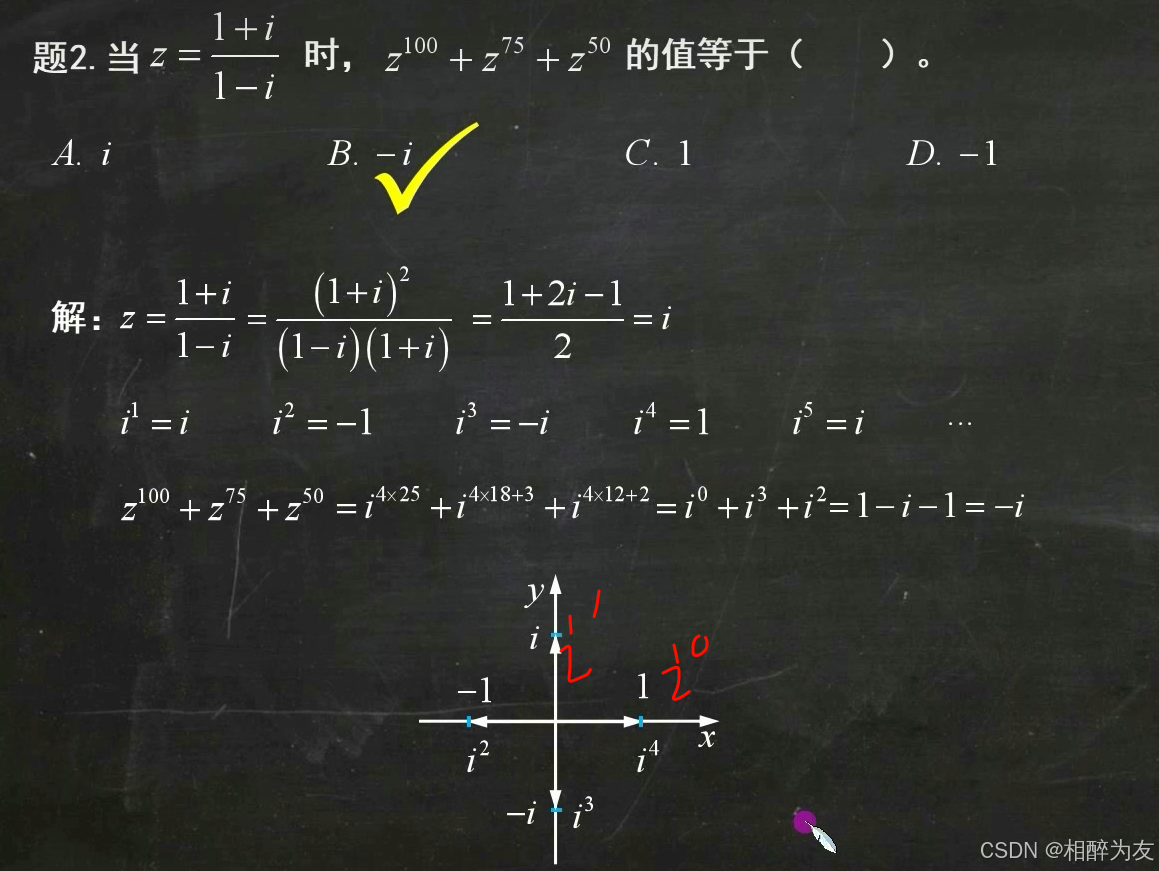 题2. 当 z = \frac{1+i}{1-i} 时， z^{100} + z^{75} + z^{50} 的值等于（　　）。
A. i B. -i C. 1 D. -1
解： z = \frac{1+i}{1-i} = \frac{(1+i)^2}{(1-i)(1+i)} = \frac{1+2i-1}{2} = i
i^1 = i i^2 = -1 i^3 = -i i^4 = 1 i^5 = i ···
z^{100} + z^{75} + z^{50} = i^{4×25} + i^{4×18+3} + i^{4×12+2} = i^0 + i^3 + i^2 = 1 - i - 1 = -i
y
i
-1 1
x
i^2 i^4
-i i^3
CSDN @相醉为友